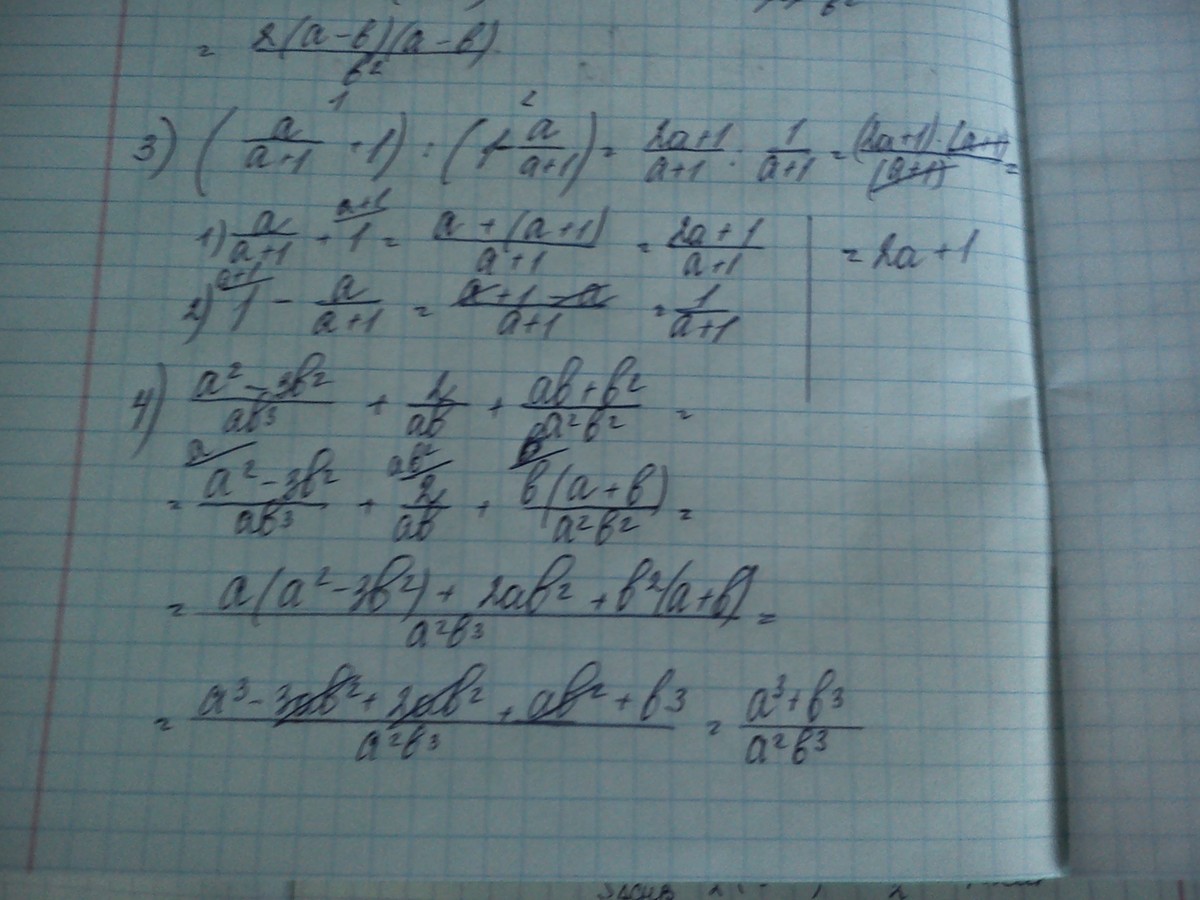 = 2(a-b)(a-b) / b²
3) (a/(a+1) + 1) : (1 - a/(a+1)) = (2a+1)/(a+1) : 1/(a+1) = (2a+1)·(a+1)/(a+1) =
1) a/(a+1) + 1 = (a+(a+1))/(a+1) = (2a+1)/(a+1) | = 2a+1
2) 1 - a/(a+1) = (a+1-a)/(a+1) = 1/(a+1)
4) (a²-3b²)/ab³ + 2/ab + (ab+b²)/a²b² =
= (a²-3b²)/ab³ + 2/ab + b(a+b)/a²b² =
= (a(a²-3b²) + 2ab² + b²(a+b))/a²b³ =
= (a³-3ab²+2ab²+ab²+b³)/a²b³ = (a³+b³)/a²b³